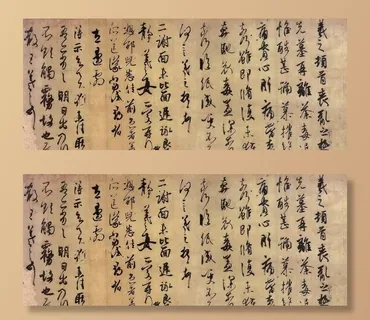 羲之頓首喪亂之極
先墓再離荼毒追
惟酷甚號慕摧絕
痛貫心肝痛當奈何
奈何雖即脩復未獲
奔馳哀毒益深奈何
奈何臨紙感哽不知
何言羲之頓首頓首
二謝面未比面遲詠良
靜羲之女愛再拜
想邵兒悉佳前患者善
所送議當試尋省
左邊劇
得示知足下猶未佳耿
吾亦劣劣明日出乃行
不欲觸霧故也遲
散王羲之頓首
羲之頓首喪亂之極
先墓再離荼毒追
惟酷甚號慕摧絕
痛貫心肝痛當奈何
奈何雖即脩復未獲
奔馳哀毒益深奈何
奈何臨紙感哽不知
何言羲之頓首頓首
二謝面未比面遲詠良
靜羲之女愛再拜
想邵兒悉佳前患者善
所送議當試尋省
左邊劇
得示知足下猶未佳耿
吾亦劣劣明日出乃行
不欲觸霧故也遲
散王羲之頓首